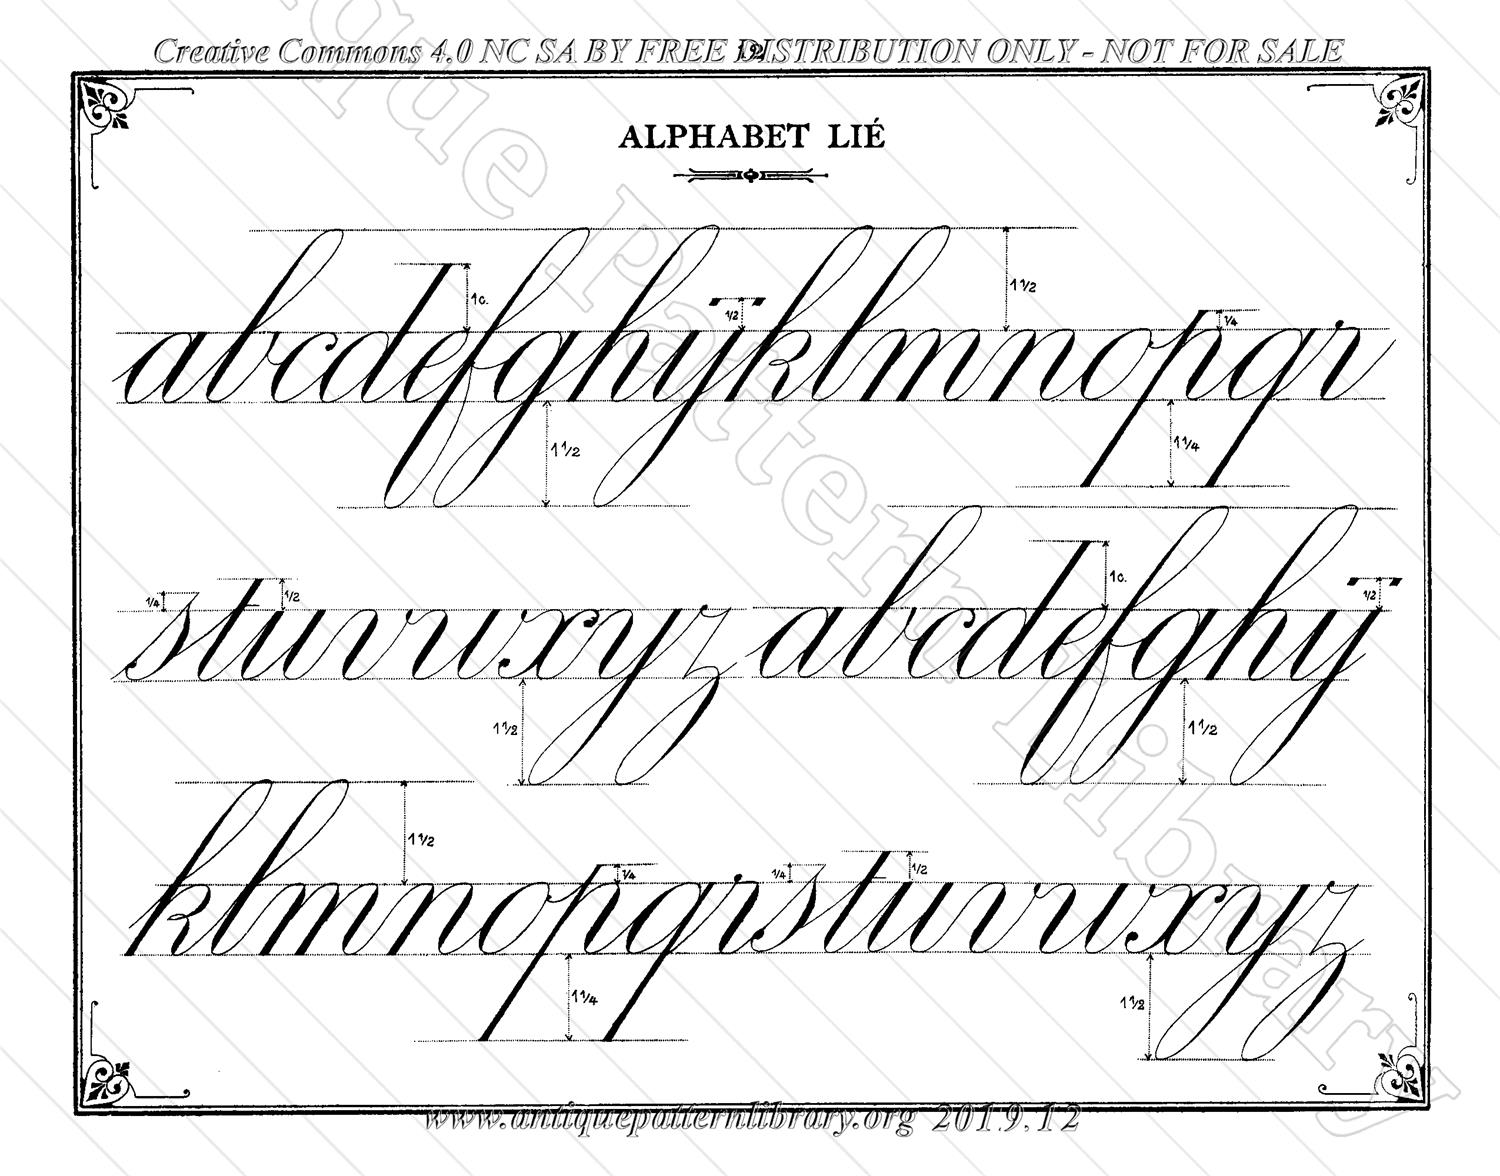 Creative Commons 4.0 NC SA BY FREE DISTRIBUTION ONLY - NOT FOR SALE
ALPHABET LIÉ
1c. 1/2 1 1/2 1/4
abcdefghijklmnopqr
1 1/2 1 1/4
1/4 1/2 1c. 1/2
stuvwxyz abcdefghij
1 1/2 1 1/2
1 1/2 1/4 1/4 1/2
klmnopqrstuvwxyz
1 1/4 1 1/2
www.antiquepatternlibrary.org 2019.12
Antique Pattern Library